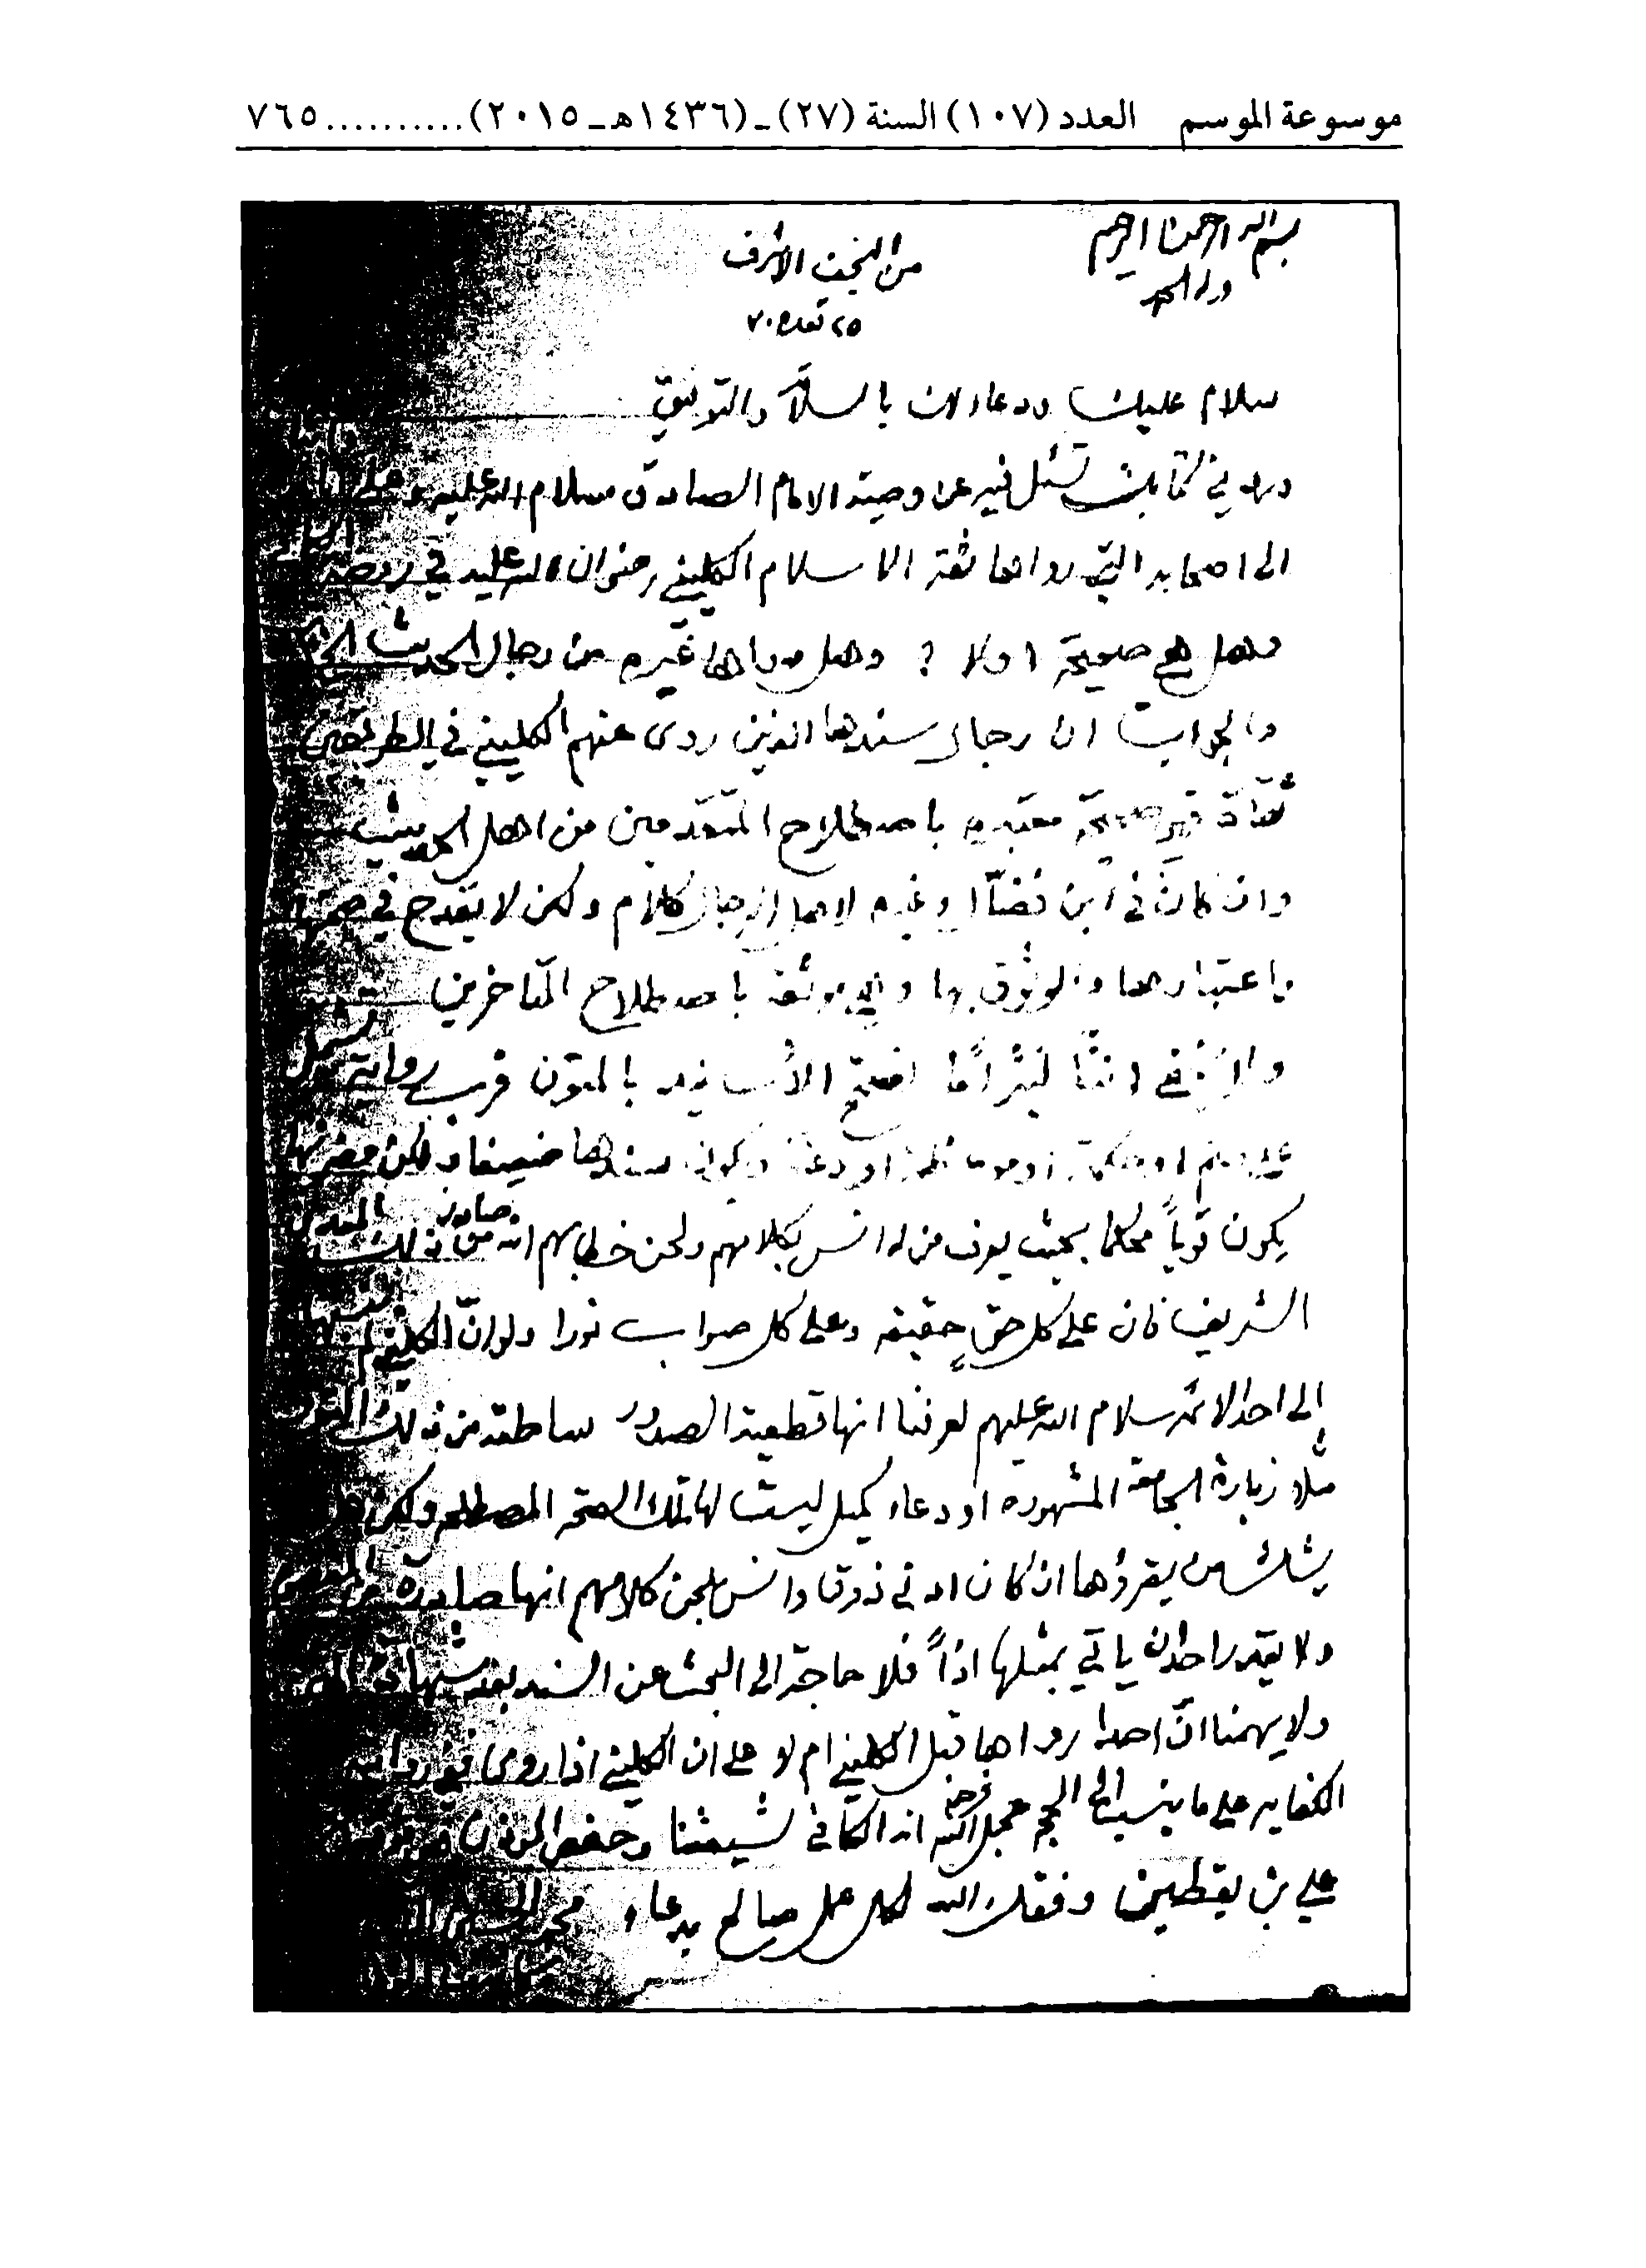 موسوعة الموسم العدد (١٠٧) السنة (٢٧)ـ(١٤٣٦هـ ـ ٢٠١٥)..........٧٦٥
بسم الله الرحمن الرحيم
وله الحمد
من النجف الاشرف
سلام عليك ودعاء لك بالسلامة والتوفيق
ورد ني كتابك تسئل فيه عن وصية الامام الصادق سلام الله عليه وعلى
الى اصحابه التي رواها ثقة الاسلام الكليني رضوان الله عليه في روضة
وهل هي صحيحة اولا ؟ وهل رواها غيره من رجال الحديث
والجواب ان رجال سندها الذين روى عنهم الكليني في الطريقين
ثقاة فهي صحيحة معتبره باصطلاح المتقدمين من اهل الحديث
وان كان في ابن فضال وغيره لاهل الرجال كلام ولكن لا يقدح في صحتها
واعتبارها والوثوق بها وهي موثقة باصطلاح المتأخرين
ولا يخفى اننا كثيراً ما نصحح الأسانيد بالمتون فرب رواية تشتمل
على او حكمة او موعظة او دعاء ويكون سندها ضعيفا ولكن
يكون قوياً محكما بحيث يعرف من له انس بكلامهم ولحن خطابهم انه صادر من ذلك المعدن
الشريف فان على كل حق حقيقه وعلى كل صواب نورا ولو انّ الكليني لم ينسبها
الى احد الائمه سلام الله عليهم لعرفنا انها قطعية الصدور ساطعة من ذلك النور
مثلا زيارة الجامعة المشهوره او دعاء كميل ليست لها تلك الصحة المصطلحه ولكن هل
يشك من يقرؤها ان كان له ادنى ذوق وانس بلحن كلامهم انها صادرة من المعصوم
ولا يقدر احد ان ياتي بمثلها اذاً فلا حاجة الى البحث عن السند بعد
ولا يهمنا انّ احدا رواها قبل الكليني ام لا على ان الكليني اذا روى ففي روايته
الكفايه على ما ينسب الى الحجة عجل الله فرجه ان الكافي لشيعتنا
علي بن يقطين وفقك الله لكل عمل صالح بدعاء محمد الحسين